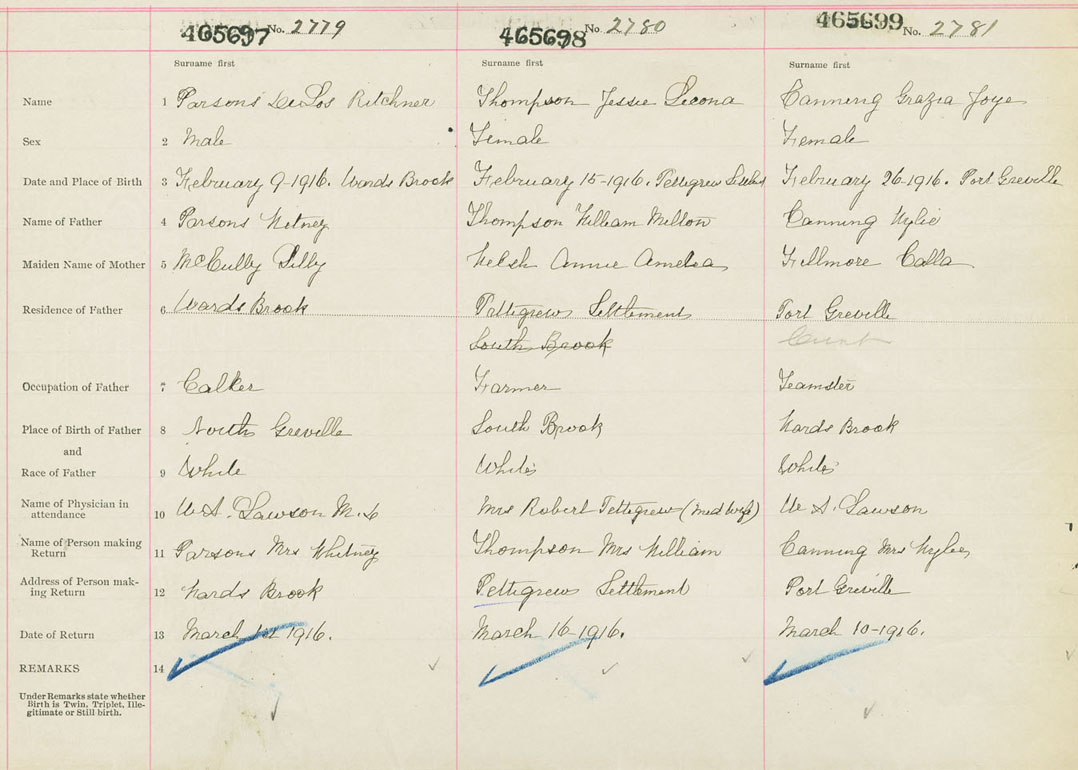 465697 No. 2779 465698 No. 2780 465699 No. 2781
Surname first Surname first Surname first
Name 1 Parsons DeLos Ritchner Thompson Jessie Leona Canning Grazia Joye
Sex 2 Male Female Female
Date and Place of Birth 3 February 9-1916. Wards Brook February 15-1916. Pettegrew February 26-1916. Port Greville
Name of Father 4 Parsons Thompson William Milton Canning Wylie
Maiden Name of Mother 5 McCulby Welsh Annie Amelia Fillmore Calla
Residence of Father 6 Wards Brook Pettegrew Settlement Port Greville
South Brook
Occupation of Father 7 Calker Farmer Teamster
Place of Birth of Father 8 North Greville South Brook Wards Brook
and
Race of Father 9 White White White
Name of Physician in
attendance 10 W A. Lawson M.D Mrs Robert Pettegrew (midwife) W A. Lawson
Name of Person making
Return 11 Parsons Mrs Whitney Thompson Mrs William Canning Mrs Wylie
Address of Person mak-
ing Return 12 Wards Brook Pettegrew Settlement Port Greville
Date of Return 13 March 1st 1916. March 16-1916. March 10-1916.
REMARKS 14
Under Remarks state whether
Birth is Twin, Triplet, Ille-
gitimate or Still birth.